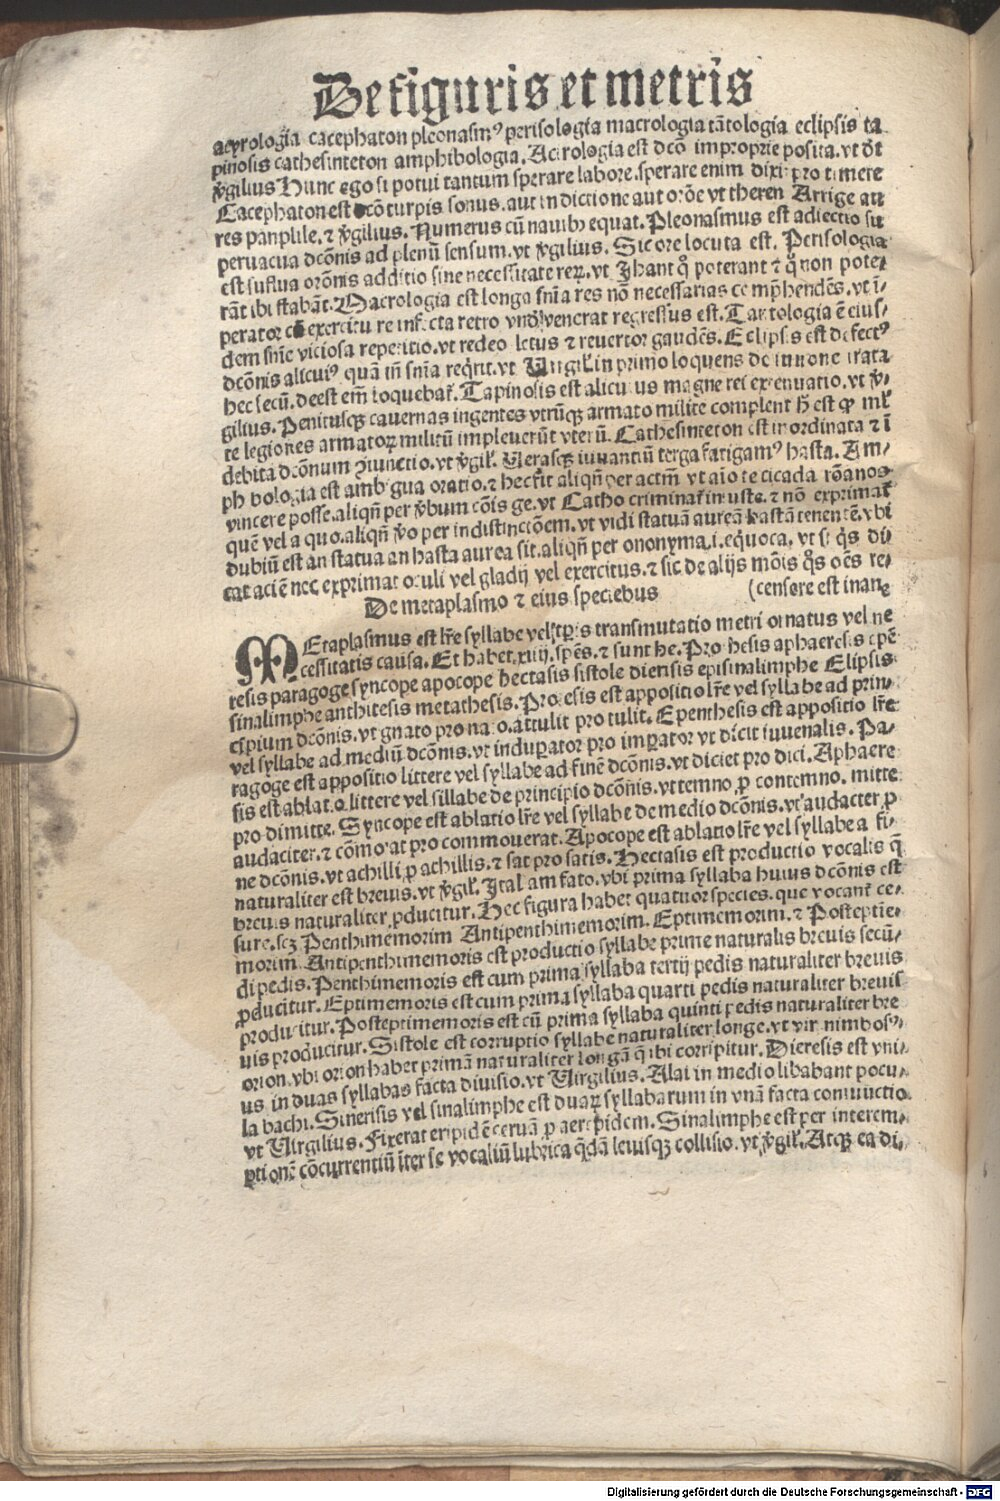 De figuris et metris
acyrologia cacephaton pleonasmꝰ perisologia macrologia tātologia eclipsis ta
pinosis cathesinteton amphibologia. Acirologia est dcō improprie posita. vt
v̄gilius Hunc ego si potui tantum sperare labore. sperare enim dixit pro timere
Cacephaton est dcō turpis sonus. aut in dictione aut orōe vt theren Arrige au
res panphile. ⁊ v̄gilius. Numerus cū nauibꝫ equat. Pleonasmus est adiectio su
peruacua dcōnis ad plenū sensum. vt v̄gilius. Sic ore locuta est. Perisologia
est suflua orōnis additio sine necessitate reꝝ. vt Ibant q̊ poterant ⁊ q̊ non pote⸗
rāt ibi stabāt. Macrologia est longa snīa res nō necessarias cōmp̄hendēs. vt ī⸗
perator cū exercitu re infecta retro vnde venerat regressus est. Tautologia ē eius⸗
dem snīe viciosa repetitio. vt redeo letus ⁊ reuertor gaudēs. Eclipsis est defectꝰ
dcōnis alicuiꝰ quā in snīa reqrit. vt Uirgil. in primo loquens de iunone irata
hec secū. deest em̄ loquebat̄. Tapinosis est alicuius magne rei extenuatio. vt v̄⸗
gilius. Penitusqꝫ cauernas ingentes vterūqꝫ armato milite complent h̄ est ꝙ mi
te legiones armatoꝝ militū impleuerūt vterū. Cathesinteton est inordinata ⁊ ī
debita dcōnum ꝯiunctio. vt v̄gil. Uersasqꝫ iuuantiū terga fatigamꝰ hasta. Am⸗
phibologia est ambigua oratio. ⁊ hec fit aliqn̄ per actm̄ vt aio te eacida rōanos
vincere posse. aliqn̄ per v̄bum cōis ge. vt Catho criminat̄ iniuste. ⁊ nō exprimat̄
quē vel a quo. aliqn̄ v̄o per indistinctōem. vt vidi statuā aureā hastā tenentē. vbi
dubiū est an statua an hasta aurea sit. aliqn̄ per ononyma .i. eq̄uoca. vt si q̄s di
cat aciē nec exprimat oculi vel gladij vel exercitus. ⁊ sic de alijs mōis q̊s oēs re⸗
De metaplasmo ⁊ eius speciebus (censere est inane
MEtaplasmus est lr̄e syllabe vel tꝑis transmutatio metri ornatus vel ne
cessitatis causa. Et habet .xiiij. spēs. ⁊ sunt he. Prothesis aphaeresis epē
tesis paragoge syncope apocope hectasis sistole dieresis episinalimphe Elipsis
sinalimphe anthitesis metathesis. Protesis est appositio lr̄e vel syllabe ad prin⸗
cipium dcōnis. vt gnato pro nato. attulit pro tulit. Epenthesis est appositio lr̄e
vel syllabe ad mediū dcōnis. vt induꝑator pro imꝑator vt dicit iuuenalis. Pa⸗
ragoge est appositio littere vel syllabe ad finē dcōnis. vt diciet pro dici. Aphaere
sis est ablatio littere vel sillabe de principio dcōnis. vt temno ꝓ contemno. mitte
pro dimitte. Syncope est ablatio lr̄e vel syllabe de medio dcōnis. vt audacter ꝓ
audaciter. ⁊ cōmorat pro commouerat. Apocope est ablatio lr̄e vel syllabe a fi⸗
ne dcōnis. vt achilli ꝓ achillis. ⁊ sat pro satis. Hectasis est productio vocalis q̄
naturaliter est breuis. vt v̄gil. Italiam fato. vbi prima syllaba huius dcōnis est
breuis naturaliter ꝓducitur. Hec figura habet quatuor species. que vocant̄ ce⸗
sure. scꝫ Penthimemorim Antipenthimemorim. Eptimemorim. ⁊ Posteptīe⸗
morim. Antipenthimemoris est productio syllabe prime naturalis breuis secū⸗
di pedis. Penthimemoris est cum prima syllaba tertij pedis naturaliter breuis
ꝓducitur. Eptimemoris est cum prima syllaba quarti pedis naturaliter breuis
producitur. Posteptimemoris est cū prima syllaba quinti pedis naturaliter bre
uis producitur. Sistole est corruptio syllabe naturaliter longe. vt vir nimbosꝰ
orion. vbi orion habet primā naturaliter longā q̄ ibi corripitur. Dieresis est vni⸗
us in duas syllabas facta diuisio. vt Uirgilius. Alai in medio libabant pocu⸗
la bachi. Sineris vel sinalimphe est duaꝝ syllabarum in vnā facta coniunctio
vt Uirgilius. Fixerat eripidē ceruā ꝓ aeripidem. Sinalimphe est per interem⸗
ptionē cōcurrentiū īter se vocaliū lubrica q̄dā leuisqꝫ collisio. vt v̄gil. Atqꝫ ea di⸗
Digitalisierung gefördert durch die Deutsche Forschungsgemeinschaft - DFG